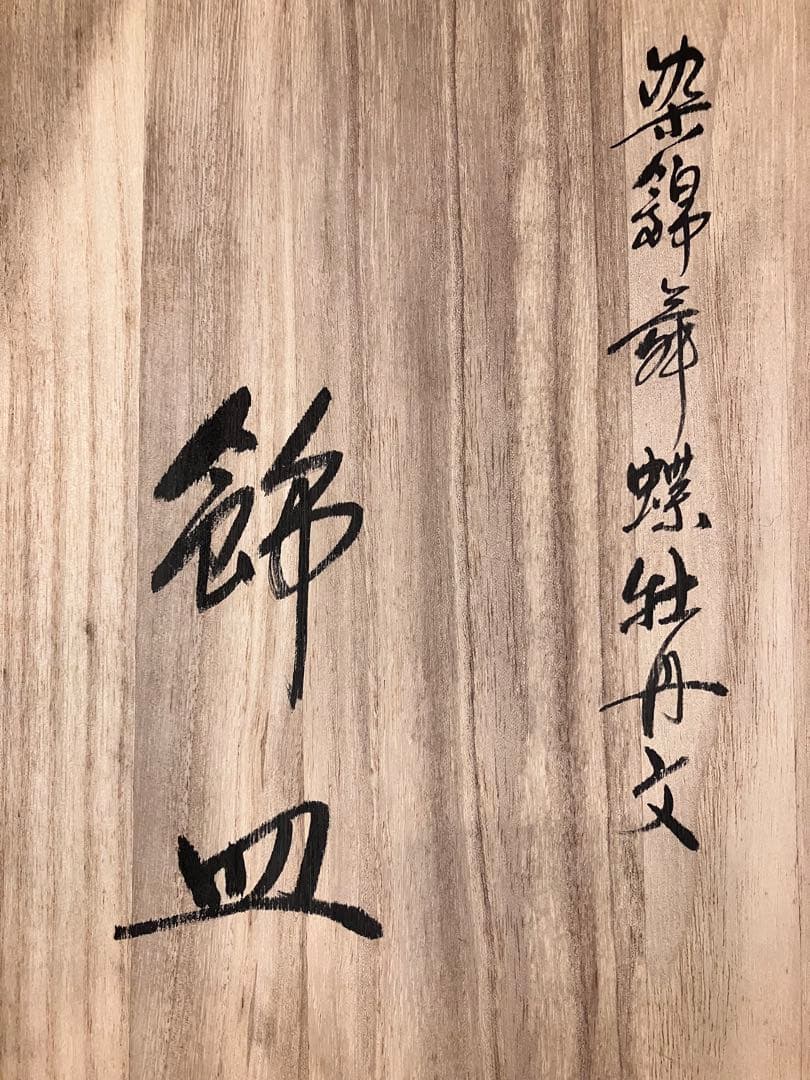 染錦舞蝶牡丹文
飾皿